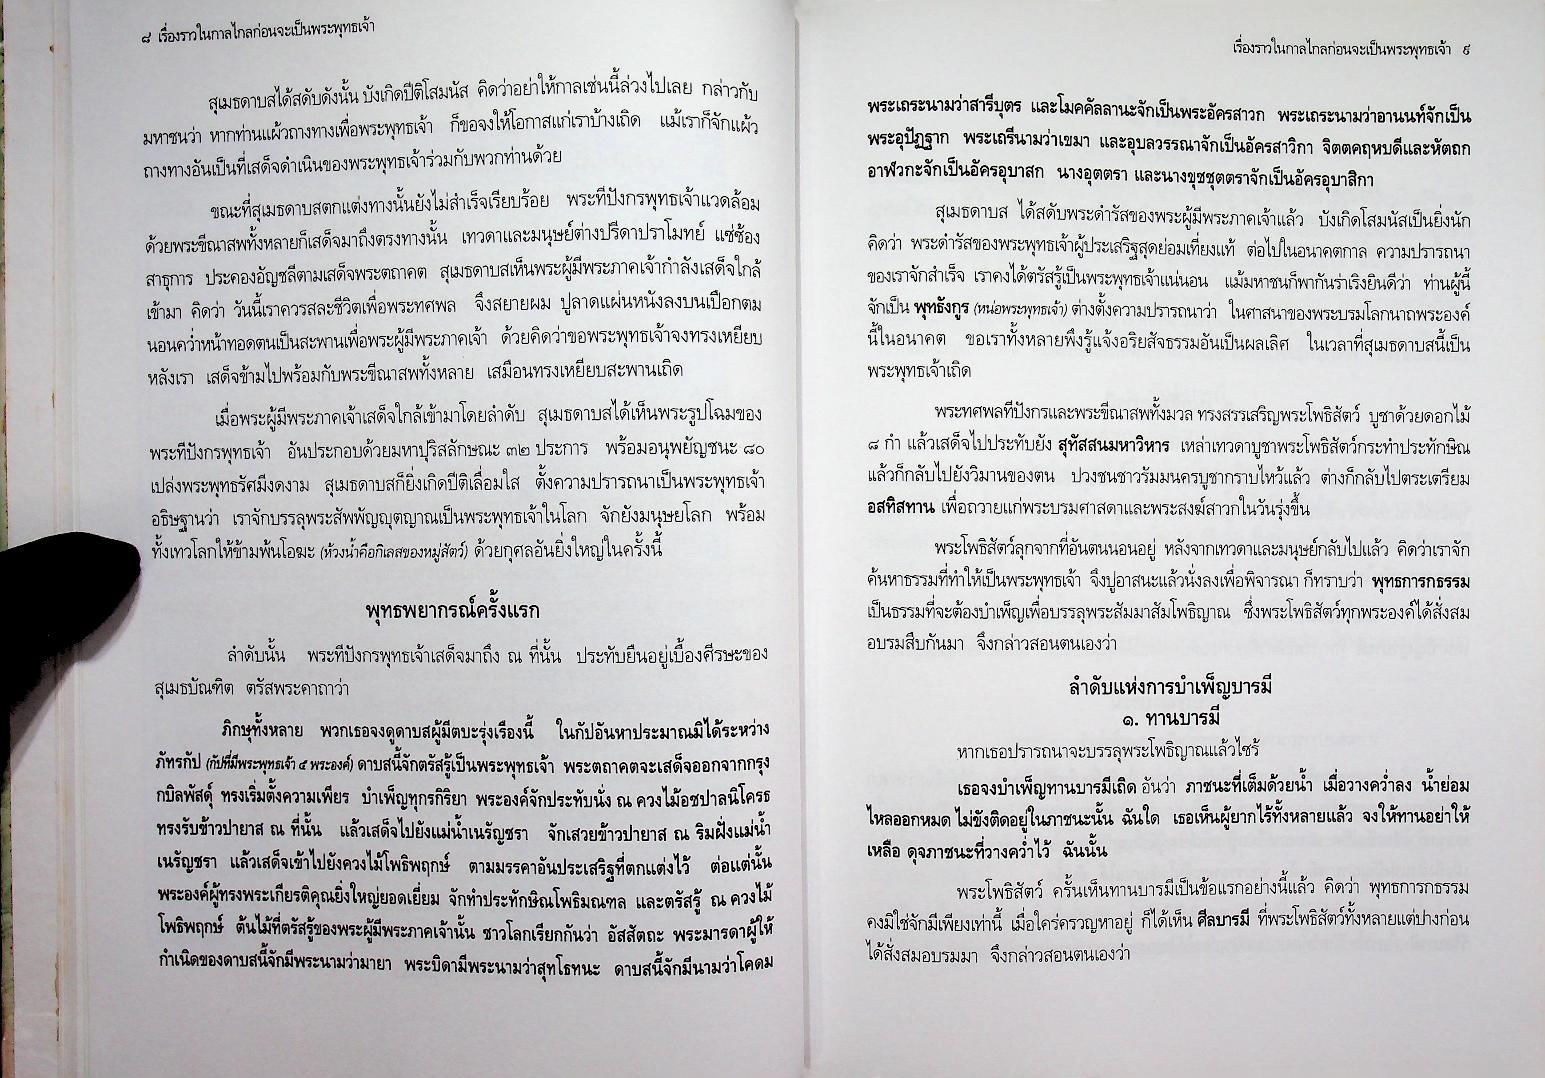 ๘ เรื่องราวในกาลไกลก่อนจะเป็นพระพุทธเจ้า
สุเมธดาบสได้สดับดังนั้น บังเกิดปีติโสมนัส คิดว่าอย่าให้กาลเช่นนี้ล่วงไปเลย กล่าวกับ
มหาชนว่า หากท่านแผ้วถางทางเพื่อพระพุทธเจ้า ก็ขอจงให้โอกาสแก่เราบ้างเถิด แม้เราก็จักแผ้ว
ถางทางอันเป็นที่เสด็จดำเนินของพระพุทธเจ้าร่วมกับพวกท่านด้วย
ขณะที่สุเมธดาบสตกแต่งทางนั้นยังไม่สำเร็จเรียบร้อย พระทีปังกรพุทธเจ้าแวดล้อม
ด้วยพระขีณาสพทั้งหลายก็เสด็จมาถึงตรงทางนั้น เทวดาและมนุษย์ต่างปรีดาปราโมทย์ แซ่ซ้อง
สาธุการ ประคองอัญชลีตามเสด็จพระตถาคต สุเมธดาบสเห็นพระผู้มีพระภาคเจ้ากำลังเสด็จใกล้
เข้ามา คิดว่า วันนี้เราควรสละชีวิตเพื่อพระทศพล จึงสยายผม ปูลาดแผ่นหนังลงบนเปือกตม
นอนคว่ำหน้าทอดตนเป็นสะพานเพื่อพระผู้มีพระภาคเจ้า ด้วยคิดว่าขอพระพุทธเจ้าจงทรงเหยียบ
หลังเรา เสด็จข้ามไปพร้อมกับพระขีณาสพทั้งหลาย เสมือนทรงเหยียบสะพานเถิด
เมื่อพระผู้มีพระภาคเจ้าเสด็จใกล้เข้ามาโดยลำดับ สุเมธดาบสได้เห็นพระรูปโฉมของ
พระทีปังกรพุทธเจ้า อันประกอบด้วยมหาปุริสลักษณะ ๓๒ ประการ พร้อมอนุพยัญชนะ ๘๐
เปล่งพระพุทธรัศมีงดงาม สุเมธดาบสก็ยิ่งเกิดปีติเลื่อมใส ตั้งความปรารถนาเป็นพระพุทธเจ้า
อธิษฐานว่า เราจักบรรลุพระสัพพัญญุตญาณเป็นพระพุทธเจ้าในโลก จักยังมนุษยโลก พร้อม
ทั้งเทวโลกให้ข้ามพ้นโอฆะ (ห้วงน้ำคือกิเลสของหมู่สัตว์) ด้วยกุศลอันยิ่งใหญ่ในครั้งนี้
พุทธพยากรณ์ครั้งแรก
ลำดับนั้น พระทีปังกรพุทธเจ้าเสด็จมาถึง ณ ที่นั้น ประทับยืนอยู่เบื้องศีรษะของ
สุเมธบัณฑิต ตรัสพระคาถาว่า
ภิกษุทั้งหลาย พวกเธอจงดูดาบสผู้มีตบะรุ่งเรืองนี้ ในกัปอันหาประมาณมิได้ระหว่าง
ภัทรกัป (กัปที่มีพระพุทธเจ้า ๕ พระองค์) ดาบสนี้จักตรัสรู้เป็นพระพุทธเจ้า พระตถาคตจะเสด็จออกจากกรุง
กบิลพัสดุ์ ทรงเริ่มตั้งความเพียร บำเพ็ญทุกรกิริยา พระองค์จักประทับนั่ง ณ ควงไม้อชปาลนิโครธ
ทรงรับข้าวปายาส ณ ที่นั้น แล้วเสด็จไปยังแม่น้ำเนรัญชรา จักเสวยข้าวปายาส ณ ริมฝั่งแม่น้ำ
เนรัญชรา แล้วเสด็จเข้าไปยังควงไม้โพธิพฤกษ์ ตามมรรคาอันประเสริฐที่ตกแต่งไว้ ต่อแต่นั้น
พระองค์ผู้ทรงพระเกียรติคุณยิ่งใหญ่ยอดเยี่ยม จักทำประทักษิณโพธิมณฑล และตรัสรู้ ณ ควงไม้
โพธิพฤกษ์ ต้นไม้ที่ตรัสรู้ของพระผู้มีพระภาคเจ้านั้น ชาวโลกเรียกกันว่า อัสสัตถะ พระมารดาผู้ให้
กำเนิดของดาบสนี้จักมีพระนามว่ามายา พระบิดามีพระนามว่าสุทโธทนะ ดาบสนี้จักมีนามว่าโคดม
เรื่องราวในกาลไกลก่อนจะเป็นพระพุทธเจ้า ๙
พระเถระนามว่าสารีบุตร และโมคคัลลานะจักเป็นพระอัครสาวก พระเถระนามว่าอานนท์จักเป็น
พระอุปัฏฐาก พระเถรีนามว่าเขมา และอุบลวรรณาจักเป็นอัครสาวิกา จิตตคฤหบดีและหัตถก
อาฬวกะจักเป็นอัครอุบาสก นางอุตตรา และนางขุชชุตตราจักเป็นอัครอุบาสิกา
สุเมธดาบส ได้สดับพระดำรัสของพระผู้มีพระภาคเจ้าแล้ว บังเกิดโสมนัสเป็นยิ่งนัก
คิดว่า พระดำรัสของพระพุทธเจ้าผู้ประเสริฐสุดย่อมเที่ยงแท้ ต่อไปในอนาคตกาล ความปรารถนา
ของเราจักสำเร็จ เราคงได้ตรัสรู้เป็นพระพุทธเจ้าแน่นอน แม้มหาชนก็พากันร่าเริงยินดีว่า ท่านผู้นี้
จักเป็น พุทธังกูร (หน่อพระพุทธเจ้า) ต่างตั้งความปรารถนาว่า ในศาสนาของพระบรมโลกนาถพระองค์
นี้ในอนาคต ขอเราทั้งหลายพึงรู้แจ้งอริยสัจธรรมอันเป็นผลเลิศ ในเวลาที่สุเมธดาบสนี้เป็น
พระพุทธเจ้าเถิด
พระทศพลทีปังกรและพระขีณาสพทั้งมวล ทรงสรรเสริญพระโพธิสัตว์ บูชาด้วยดอกไม้
๘ กำ แล้วเสด็จไปประทับยัง สุทัสสนมหาวิหาร เหล่าเทวดาบูชาพระโพธิสัตว์กระทำประทักษิณ
แล้วก็กลับไปยังวิมานของตน ปวงชนชาวรัมมนครบูชากราบไหว้แล้ว ต่างก็กลับไปตระเตรียม
อสทิสทาน เพื่อถวายแก่พระบรมศาสดาและพระสงฆ์สาวกในวันรุ่งขึ้น
พระโพธิสัตว์ลุกจากที่อันตนนอนอยู่ หลังจากเทวดาและมนุษย์กลับไปแล้ว คิดว่าเราจัก
ค้นหาธรรมที่ทำให้เป็นพระพุทธเจ้า จึงปูอาสนะแล้วนั่งลงเพื่อพิจารณา ก็ทราบว่า พุทธการกธรรม
เป็นธรรมที่จะต้องบำเพ็ญเพื่อบรรลุพระสัมมาสัมโพธิญาณ ซึ่งพระโพธิสัตว์ทุกพระองค์ได้สั่งสม
อบรมสืบกันมา จึงกล่าวสอนตนเองว่า
ลำดับแห่งการบำเพ็ญบารมี
๑. ทานบารมี
หากเธอปรารถนาจะบรรลุพระโพธิญาณแล้วไซร้
เธอจงบำเพ็ญทานบารมีเถิด อันว่า ภาชนะที่เต็มด้วยน้ำ เมื่อวางคว่ำลง น้ำย่อม
ไหลออกหมด ไม่ขังติดอยู่ในภาชนะนั้น ฉันใด เธอเห็นผู้ยากไร้ทั้งหลายแล้ว จงให้ทานอย่าให้
เหลือ ดุจภาชนะที่วางคว่ำไว้ ฉันนั้น
พระโพธิสัตว์ ครั้นเห็นทานบารมีเป็นข้อแรกอย่างนี้แล้ว คิดว่า พุทธการกธรรม
คงมิใช่จักมีเพียงเท่านี้ เมื่อใคร่ครวญหาอยู่ ก็ได้เห็น ศีลบารมี ที่พระโพธิสัตว์ทั้งหลายแต่ปางก่อน
ได้สั่งสมอบรมมา จึงกล่าวสอนตนเองว่า